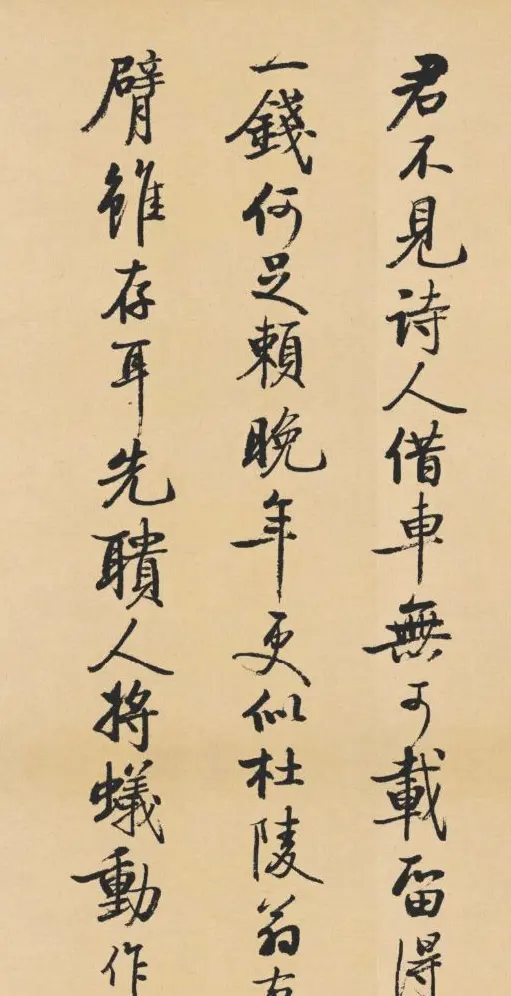 君不見詩人借車無可載留得
一錢何足賴晚年更似杜陵翁右
臂雖存耳先聵人將蟻動作